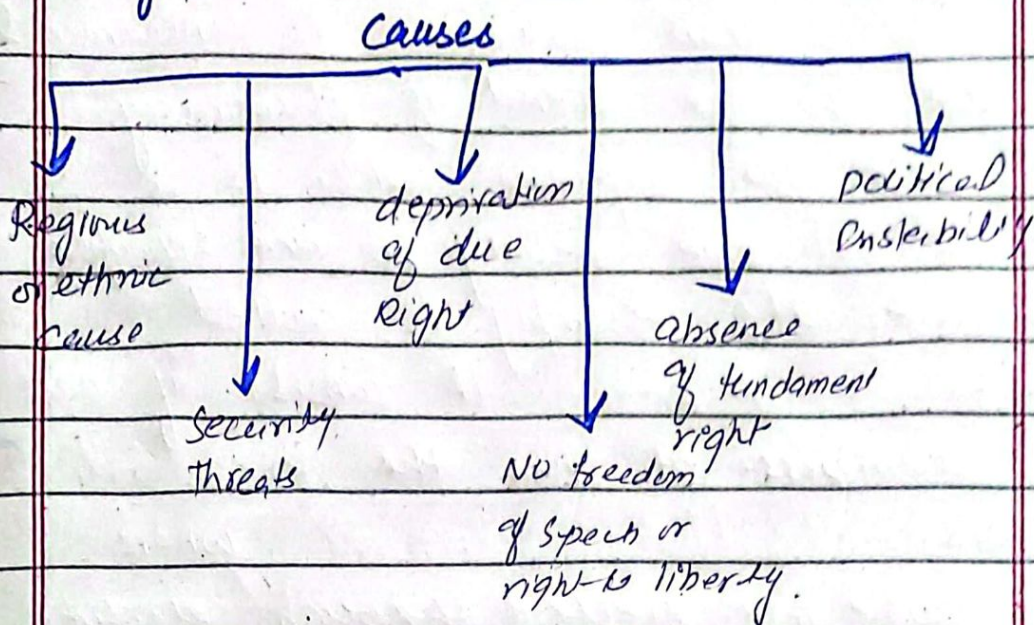 Causes
Regious
or ethnic
cause
Security
threats
depriration
of due
Right
No freedom
of Spech or
right to liberty.
absence
of fundament
right
political
Instability